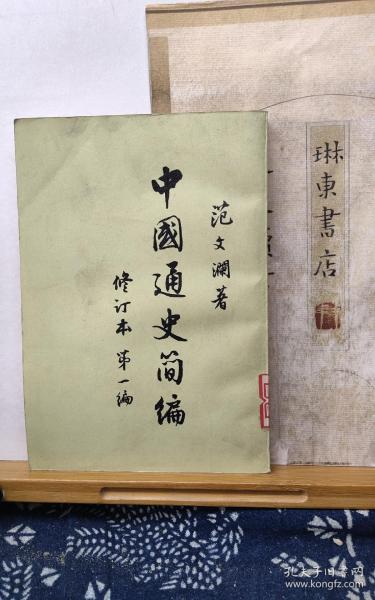 范文瀾著
中國通史简编
修订本 第一编
琳東書店
孔夫子旧书网
www.kongfz.com